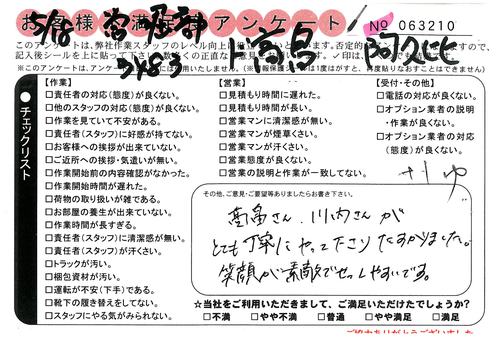 お客様満足度アンケート
No 063210
チェックリスト
【作業】
□責任者の対応(態度)が良くない。
□他のスタッフの対応(態度)が良くない。
□作業を見ていて不安がある。
□責任者(スタッフ)に好感が持てない。
□お客様への挨拶が出来ていない。
□ご近所への挨拶・気遣いが無い。
□作業開始前の内容確認がなかった。
□作業開始時間が遅れた。
□荷物の取り扱いが雑である。
□お部屋の養生が出来ていない。
□作業時間が長すぎる。
□責任者(スタッフ)に清潔感が無い。
□責任者(スタッフ)が汗くさい。
□トラックが汚い。
□梱包資材が汚い。
□運転が不安(下手)である。
□靴下の履き替えをしてない。
□スタッフにやる気がみられない。
【営業】
□見積もり時間に遅れた。
□見積もり時間が長い。
□営業マンに清潔感が無い。
□営業マンが煙草くさい。
□営業マンが汗くさい。
□営業態度が良くない。
□営業の説明と作業が一致してない。
【受付・その他】
□電話の対応が良くない。
□オプション業者の説明
・作業が良くない。
□オプション業者の対応
(態度)が良くない。
その他、ご意見・ご要望等ありましたらお書き下さい。
高畠さん、川内さんが
とても丁寧にやって下さりたすかりました。
笑顔が素敵でせっしやすいです。
☆当社をご利用いただきまして、ご満足いただけたでしょうか?
□不満 □やや不満 □普通 □やや満足 □満足
ご協力ありがとうございました